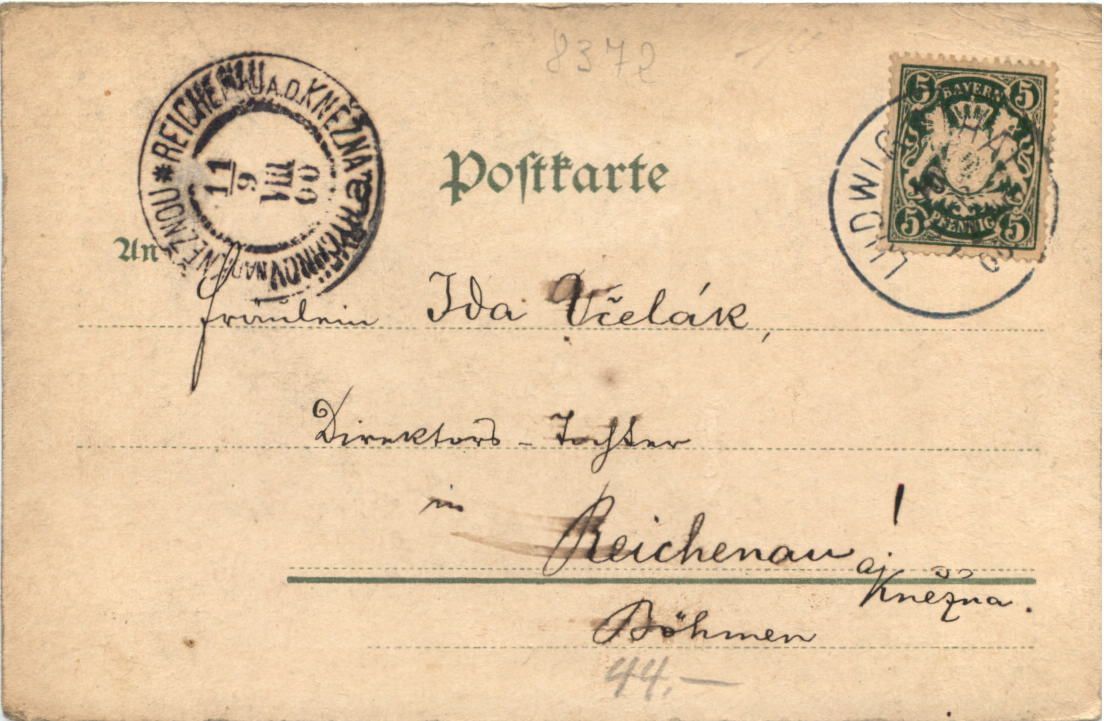 8372
REICHENAU A.D. KNĚŽNA * RYCHNOV NAD KNĚŽNOU
11
9
VIII
00
Postkarte
5 BAYERN 5
5 PFENNIG 5
LUDWIG
An
Fräulein Ida Včelák,
Direktors - Tochter
in
Reichenau !
a/
Kněžna.
Böhmen
44.—